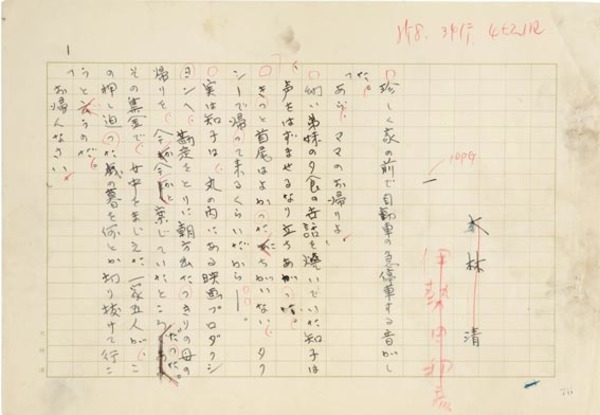 林 清
伊勢田
10ポ
一
珍しく家の前で自動車の急停車する音がし
た。
「あら、ママのお帰りよ」
幼い弟妹の夕食の世話を焼いでいた知子は
声をはずませるなり立ちあがった。
きっと首尾はよかったにちがいない。タク
シーで帰って来るくらいだから――。
実は知子は、丸の内にある映画プロダクシ
ョンへ、勘定をとりに朝方出たきりの母の
帰りを、今か今かと案じていたところだった。
その集金で、女中をまじえた一家五人が、こ
の押し迫った歳の暮を何とか切り抜けて行こ
うと云うのだ。
「お帰んなさい」
1